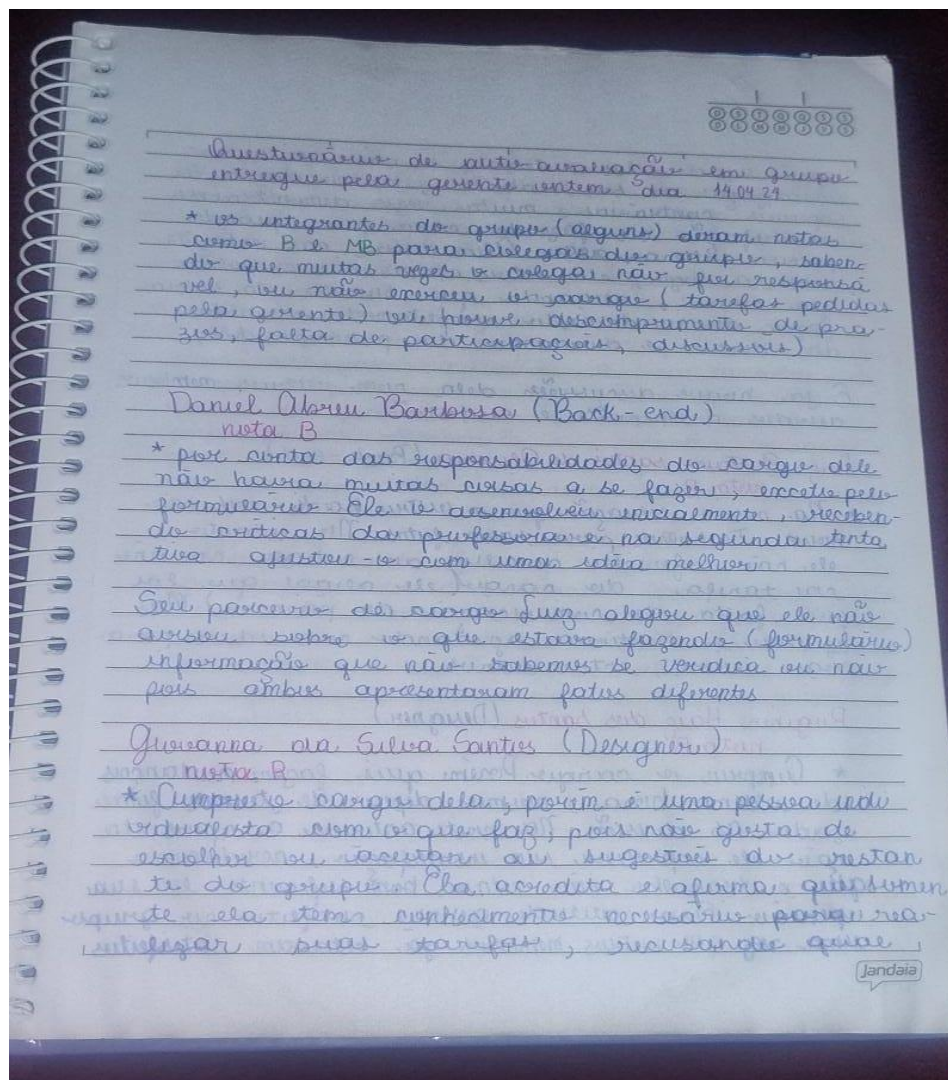 D S T Q Q S S
D L M M J V S
Questionário de auto avaliação em grupo
entregue pela gerente ontem dia 14.04.24
* os integrantes do grupo (alguns) deram notas
como B e MB para colegas do grupo, saben-
do que muitas vezes o colega não foi responsá
vel, ou não exerceu o cargo (tarefas pedidas
pela gerente) ou houve descomprimento de pra-
zos, falta de participações, discussões)
Daniel Abreu Barbosa (Back-end)
nota B
* por conta das responsabilidades do cargo dele
não havia muitas coisas a se fazer, exceto pelo
formulário. Ele o desenvolveu inicialmente, receben-
do críticas da professora e na segunda tenta
tiva ajustou-o com uma idéia melhor.
Seu parceiro de cargo Luiz alegou que ele não
avisou sobre o que estava fazendo (formulário)
informação que não sabemos se verídica ou não
pois ambos apresentaram fatos diferentes
Giovanna da Silva Santos (Designer)
nota B
* Cumpre o cargo dela, porém é uma pessoa indi
vidualista com o que faz, pois não gosta de
escolher ou aceitar as sugestões do restan
te do grupo. Ela acredita e afirma que somen
te ela tem conhecimento necessário para rea-
lizar suas tarefas, recusando
Jandaia